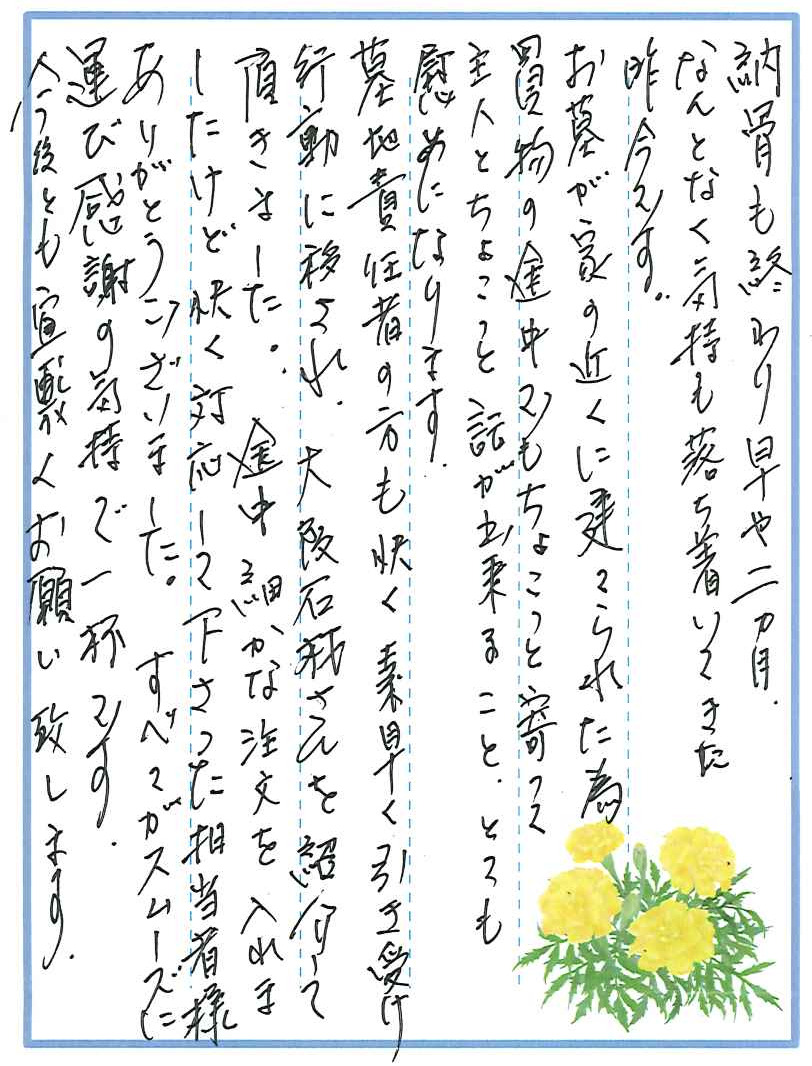 納骨も終わり早や二カ月.
なんとなく気持も落ち着いてきた
昨今です。
お墓が家の近くに建てられた為
買物の途中でもちょこっと寄って
主人とちょこっと話が出来ること.とても
慰めになります.
墓地責任者の方も快く素早く引き受け
行動に移され、大阪石材さんを紹介して
頂きました。途中細かな注文を入れま
したけど快く対応して下さった担当者様
ありがとうございました。すべてがスムーズに
運び感謝の気持で一杯です.
今後とも宜敷くお願い致します.